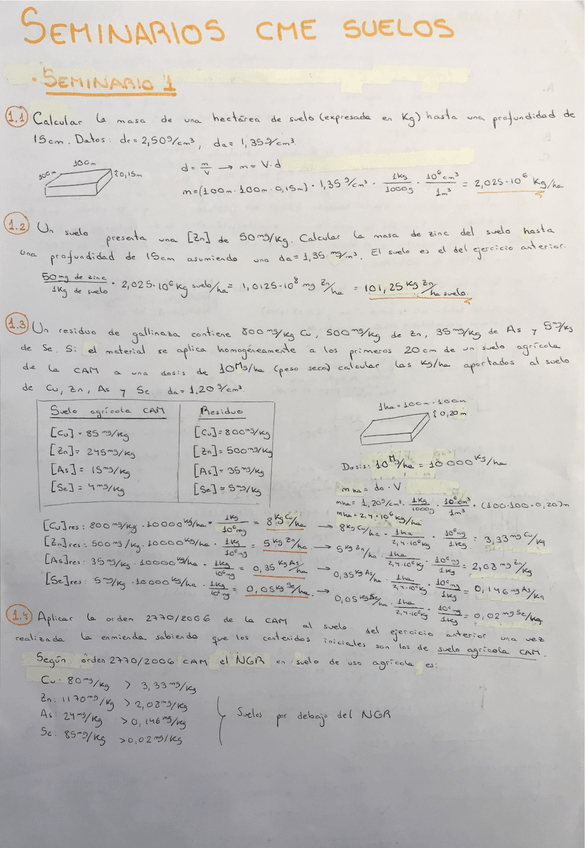 SEMINARIOS CME SUELOS
· SEMINARIO 1
1.1 Calcular la masa de una hectárea de suelo (expresada en Kg) hasta una profundidad de
15cm. Datos: dr = 2,50 g/cm³, da = 1,35 g/cm³.
100m
100m
0,15m
d = m/v → m = V·d
m = (100m·100m·0,15m) · 1,35 g/cm³ · 1Kg/1000g · 10⁶cm³/1m³ = 2,025·10⁶ Kg/ha
1.2 Un suelo presenta una [Zn] de 50 mg/Kg. Calcular la masa de zinc del suelo hasta
una profundidad de 15cm asumiendo una da = 1,35 mg/m³. El suelo es el del ejercicio anterior.
50 mg de zinc/1Kg de suelo · 2,025·10⁶ Kg suelo/ha = 1,0125·10⁸ mg Zn/ha = 101,25 Kg Zn/ha suelo.
1.3 Un residuo de gallinaza contiene 800 mg/Kg Cu, 500 mg/Kg de Zn, 35 mg/Kg de As y 5 mg/Kg
de Se. Si el material se aplica homogéneamente a los primeros 20cm de un suelo agrícola
de la CAM a una dosis de 10 Mg/ha (peso seco) calcular las Kg/ha aportados al suelo
de Cu, Zn, As y Se da = 1,20 g/cm³.
Suelo agrícola CAM Residuo
[Cu] = 85 mg/Kg [Cu] = 800 mg/Kg
[Zn] = 245 mg/Kg [Zn] = 500 mg/Kg
[As] = 15 mg/Kg [As] = 35 mg/Kg
[Se] = 4 mg/Kg [Se] = 5 mg/Kg
1ha = 100m · 100m
0,20m
Dosis: 10 Mg/ha = 10000 Kg/ha
mha = da · V
mha = 1,20 g/cm³ · 1Kg/1000g · 10⁶cm³/1m³ · (100·100·0,20)m
mha = 2,4·10⁶ Kg/ha
[Cu]res: 800 mg/Kg · 10000 Kg/ha · 1Kg/10⁶mg = 8 Kg Cu/ha → 8 Kg Cu/ha · 1ha/2,4·10⁶Kg · 10⁶mg/1Kg : 3,33 mg Cu/Kg
[Zn]res: 500 mg/Kg · 10000 Kg/ha · 1Kg/10⁶mg = 5 Kg Zn/ha → 5 Kg Zn/ha · 1ha/2,4·10⁶Kg · 10⁶mg/1Kg : 2,08 mg Zn/Kg
[As]res: 35 mg/Kg · 10000 Kg/ha · 1Kg/10⁶mg = 0,35 Kg As/ha → 0,35 Kg As/ha · 1ha/2,4·10⁶Kg · 10⁶mg/1Kg = 0,146 mg As/Kg
[Se]res: 5 mg/Kg · 10000 Kg/ha · 1Kg/10⁶mg = 0,05 Kg Se/ha → 0,05 Kg Se/ha · 1ha/2,4·10⁶Kg · 10⁶mg/1Kg = 0,02 mg Se/Kg
1.4 Aplicar la orden 2770/2006 de la CAM al suelo del ejercicio anterior una vez
realizada la enmienda sabiendo que los contenidos iniciales son los de suelo agrícola CAM.
Según orden 2770/2006 CAM el NGR en suelo de uso agrícola es:
Cu: 80 mg/Kg > 3,33 mg/Kg
Zn: 1170 mg/Kg > 2,08 mg/Kg
As: 24 mg/Kg > 0,146 mg/Kg
Se: 85 mg/Kg > 0,02 mg/Kg
Suelos por debajo del NGR